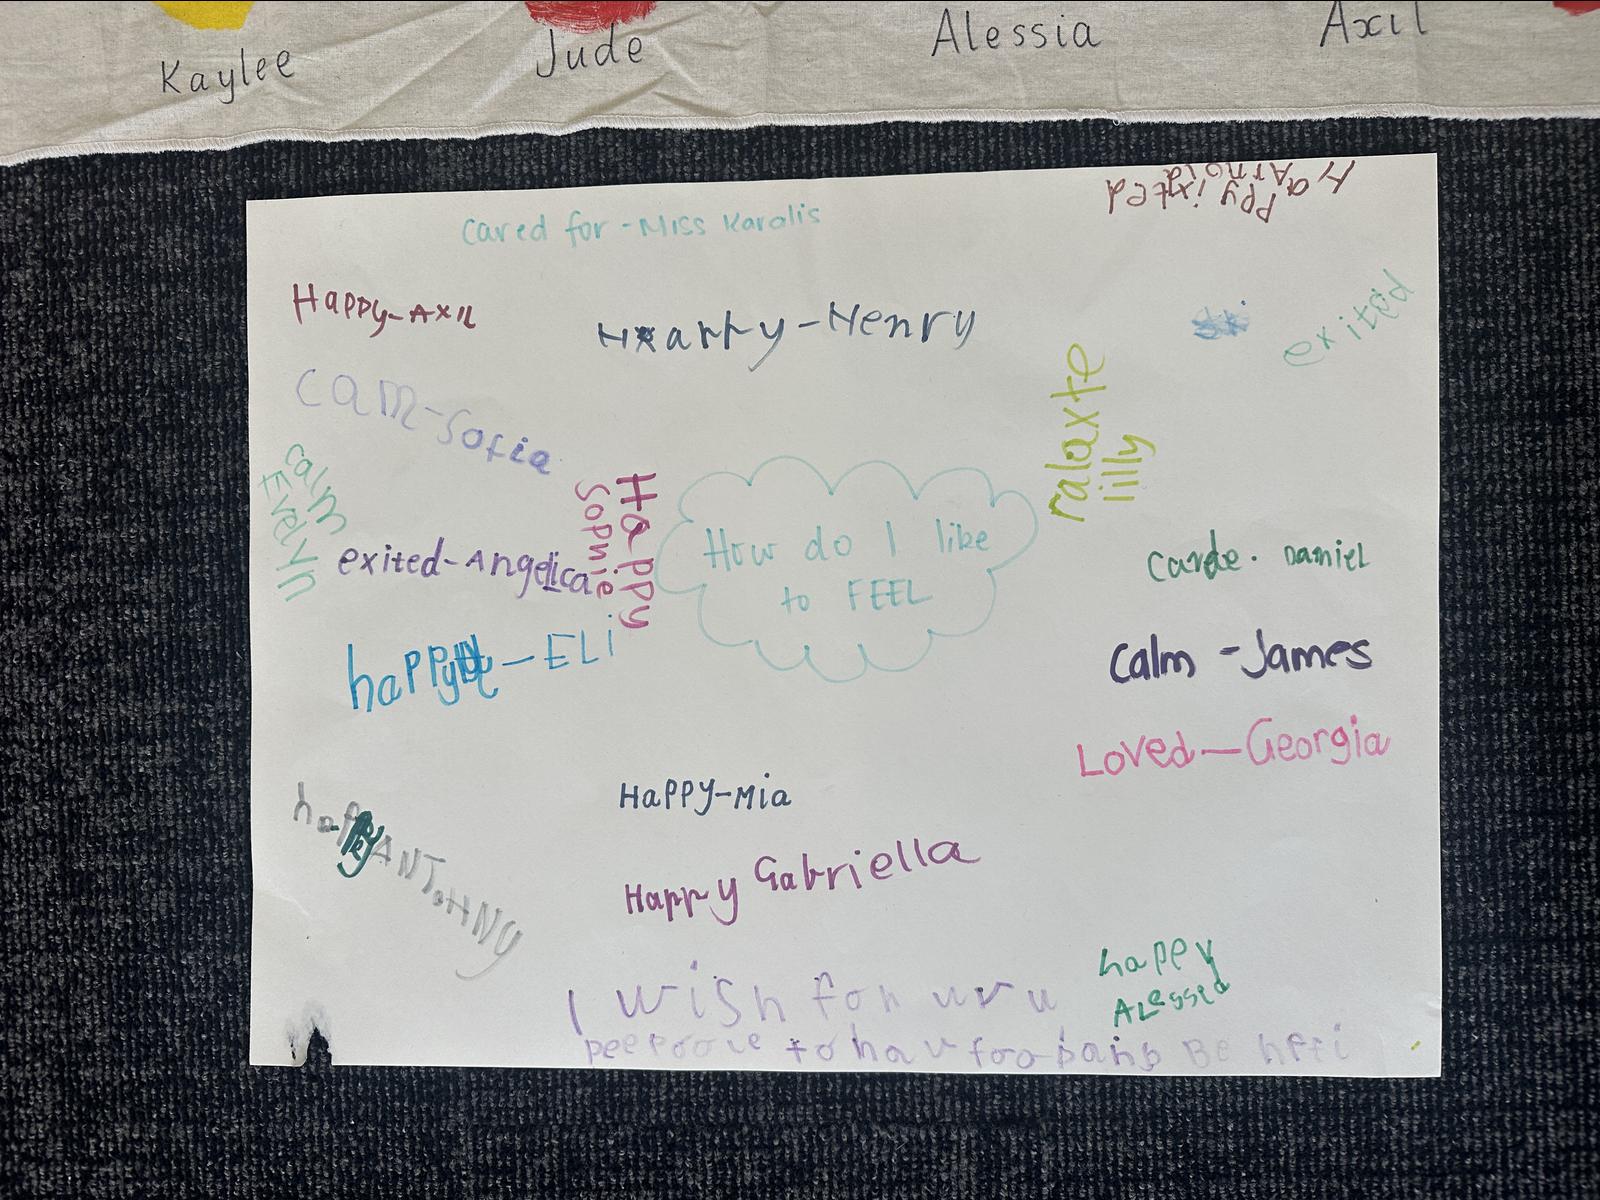 Kaylee
Jude
Alessia
Axil
cared for - Miss Karalis
Happy ixted
Arnold
Happy - Axil
Harry - Henry
exited
cam - Sofia
ralaxte
lilly
calm
Evelyn
Happy
Sophie
exited - Angelica
How do I like
to FEEL
carde. Daniel
happy - ELi
calm - James
Loved - Georgia
Happy - Mia
happy ANTOHNY
Happy Gabriella
happy
ALessia
I wish for
to hav foo